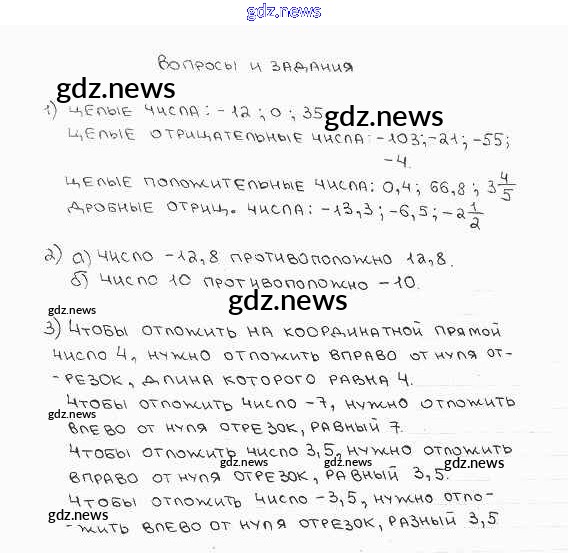 gdz.news
ВОПРОСЫ И ЗАДАНИЯ
gdz.news
1) ЦЕЛЫЕ ЧИСЛА: -12; 0; 35
gdz.news
ЦЕЛЫЕ ОТРИЦАТЕЛЬНЫЕ ЧИСЛА: -103; -21; -55;
-4.
ЦЕЛЫЕ ПОЛОЖИТЕЛЬНЫЕ ЧИСЛА: 0,4; 66,8; 3 4/5
ДРОБНЫЕ ОТРИЦ. ЧИСЛА: -13,3; -6,5; -2 1/2
2) а) ЧИСЛО -12,8 ПРОТИВОПОЛОЖНО 12,8.
б) ЧИСЛО 10 ПРОТИВОПОЛОЖНО -10.
gdz.news
gdz.news
3) ЧТОБЫ ОТЛОЖИТЬ НА КООРДИНАТНОЙ ПРЯМОЙ
ЧИСЛО 4, НУЖНО ОТЛОЖИТЬ ВПРАВО ОТ НУЛЯ ОТ-
-РЕЗОК, ДЛИНА КОТОРОГО РАВНА 4.
ЧТОБЫ ОТЛОЖИТЬ ЧИСЛО -7, НУЖНО ОТЛОЖИТЬ
gdz.news
ВЛЕВО ОТ НУЛЯ ОТРЕЗОК, РАВНЫЙ 7.
ЧТОБЫ ОТЛОЖИТЬ ЧИСЛО 3,5, НУЖНО ОТЛОЖИТЬ
gdz.news gdz.news gdz.news
ВПРАВО ОТ НУЛЯ ОТРЕЗОК, РАВНЫЙ 3,5.
ЧТОБЫ ОТЛОЖИТЬ ЧИСЛО -3,5, НУЖНО ОТЛО-
gdz.news
-ЖИТЬ ВЛЕВО ОТ НУЛЯ ОТРЕЗОК, РАЗНЫЙ 3,5